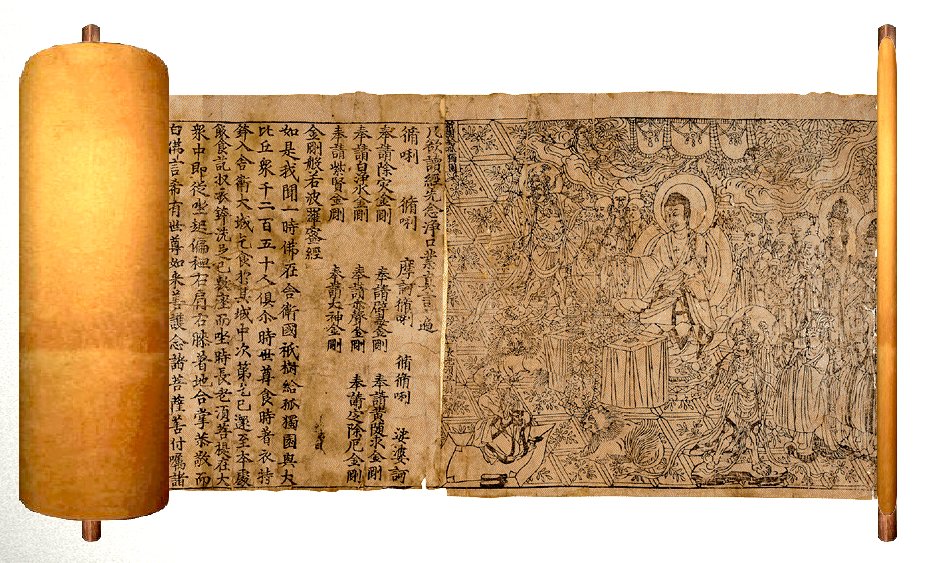 凡欲讀經先念淨口業真言一遍
脩唎 脩唎 摩訶脩唎 脩脩唎 娑婆訶
奉請除灾金剛 奉請辟毒金剛 奉請黃隨求金剛
奉請白淨水金剛 奉請赤聲金剛 奉請定除厄金剛
奉請紫賢金剛 奉請大神金剛
金剛般若波羅蜜經
如是我聞一時佛在舍衛國祇樹給孤獨園與大
比丘衆千二百五十人俱尒時世尊食時著衣持
鉢入舍衛大城乞食於其城中次第乞已還至本處
飯食訖收衣鉢洗足已敷座而坐時長老須菩提在大
衆中即從坐起偏袒右肩右膝著地合掌恭敬而
白佛言希有世尊如來善護念諸菩薩善付囑諸